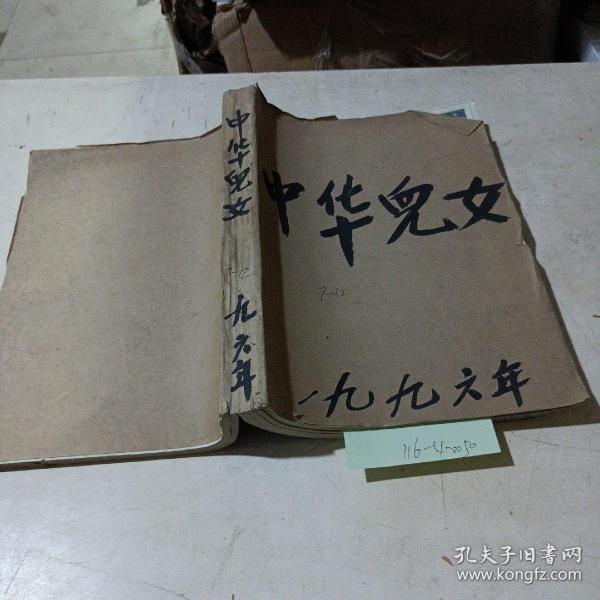 中华兒女
7-12
九六年
中华兒女
7-12
一九九六年
116-4-0050
孔夫子旧书网
www.kongfz.com